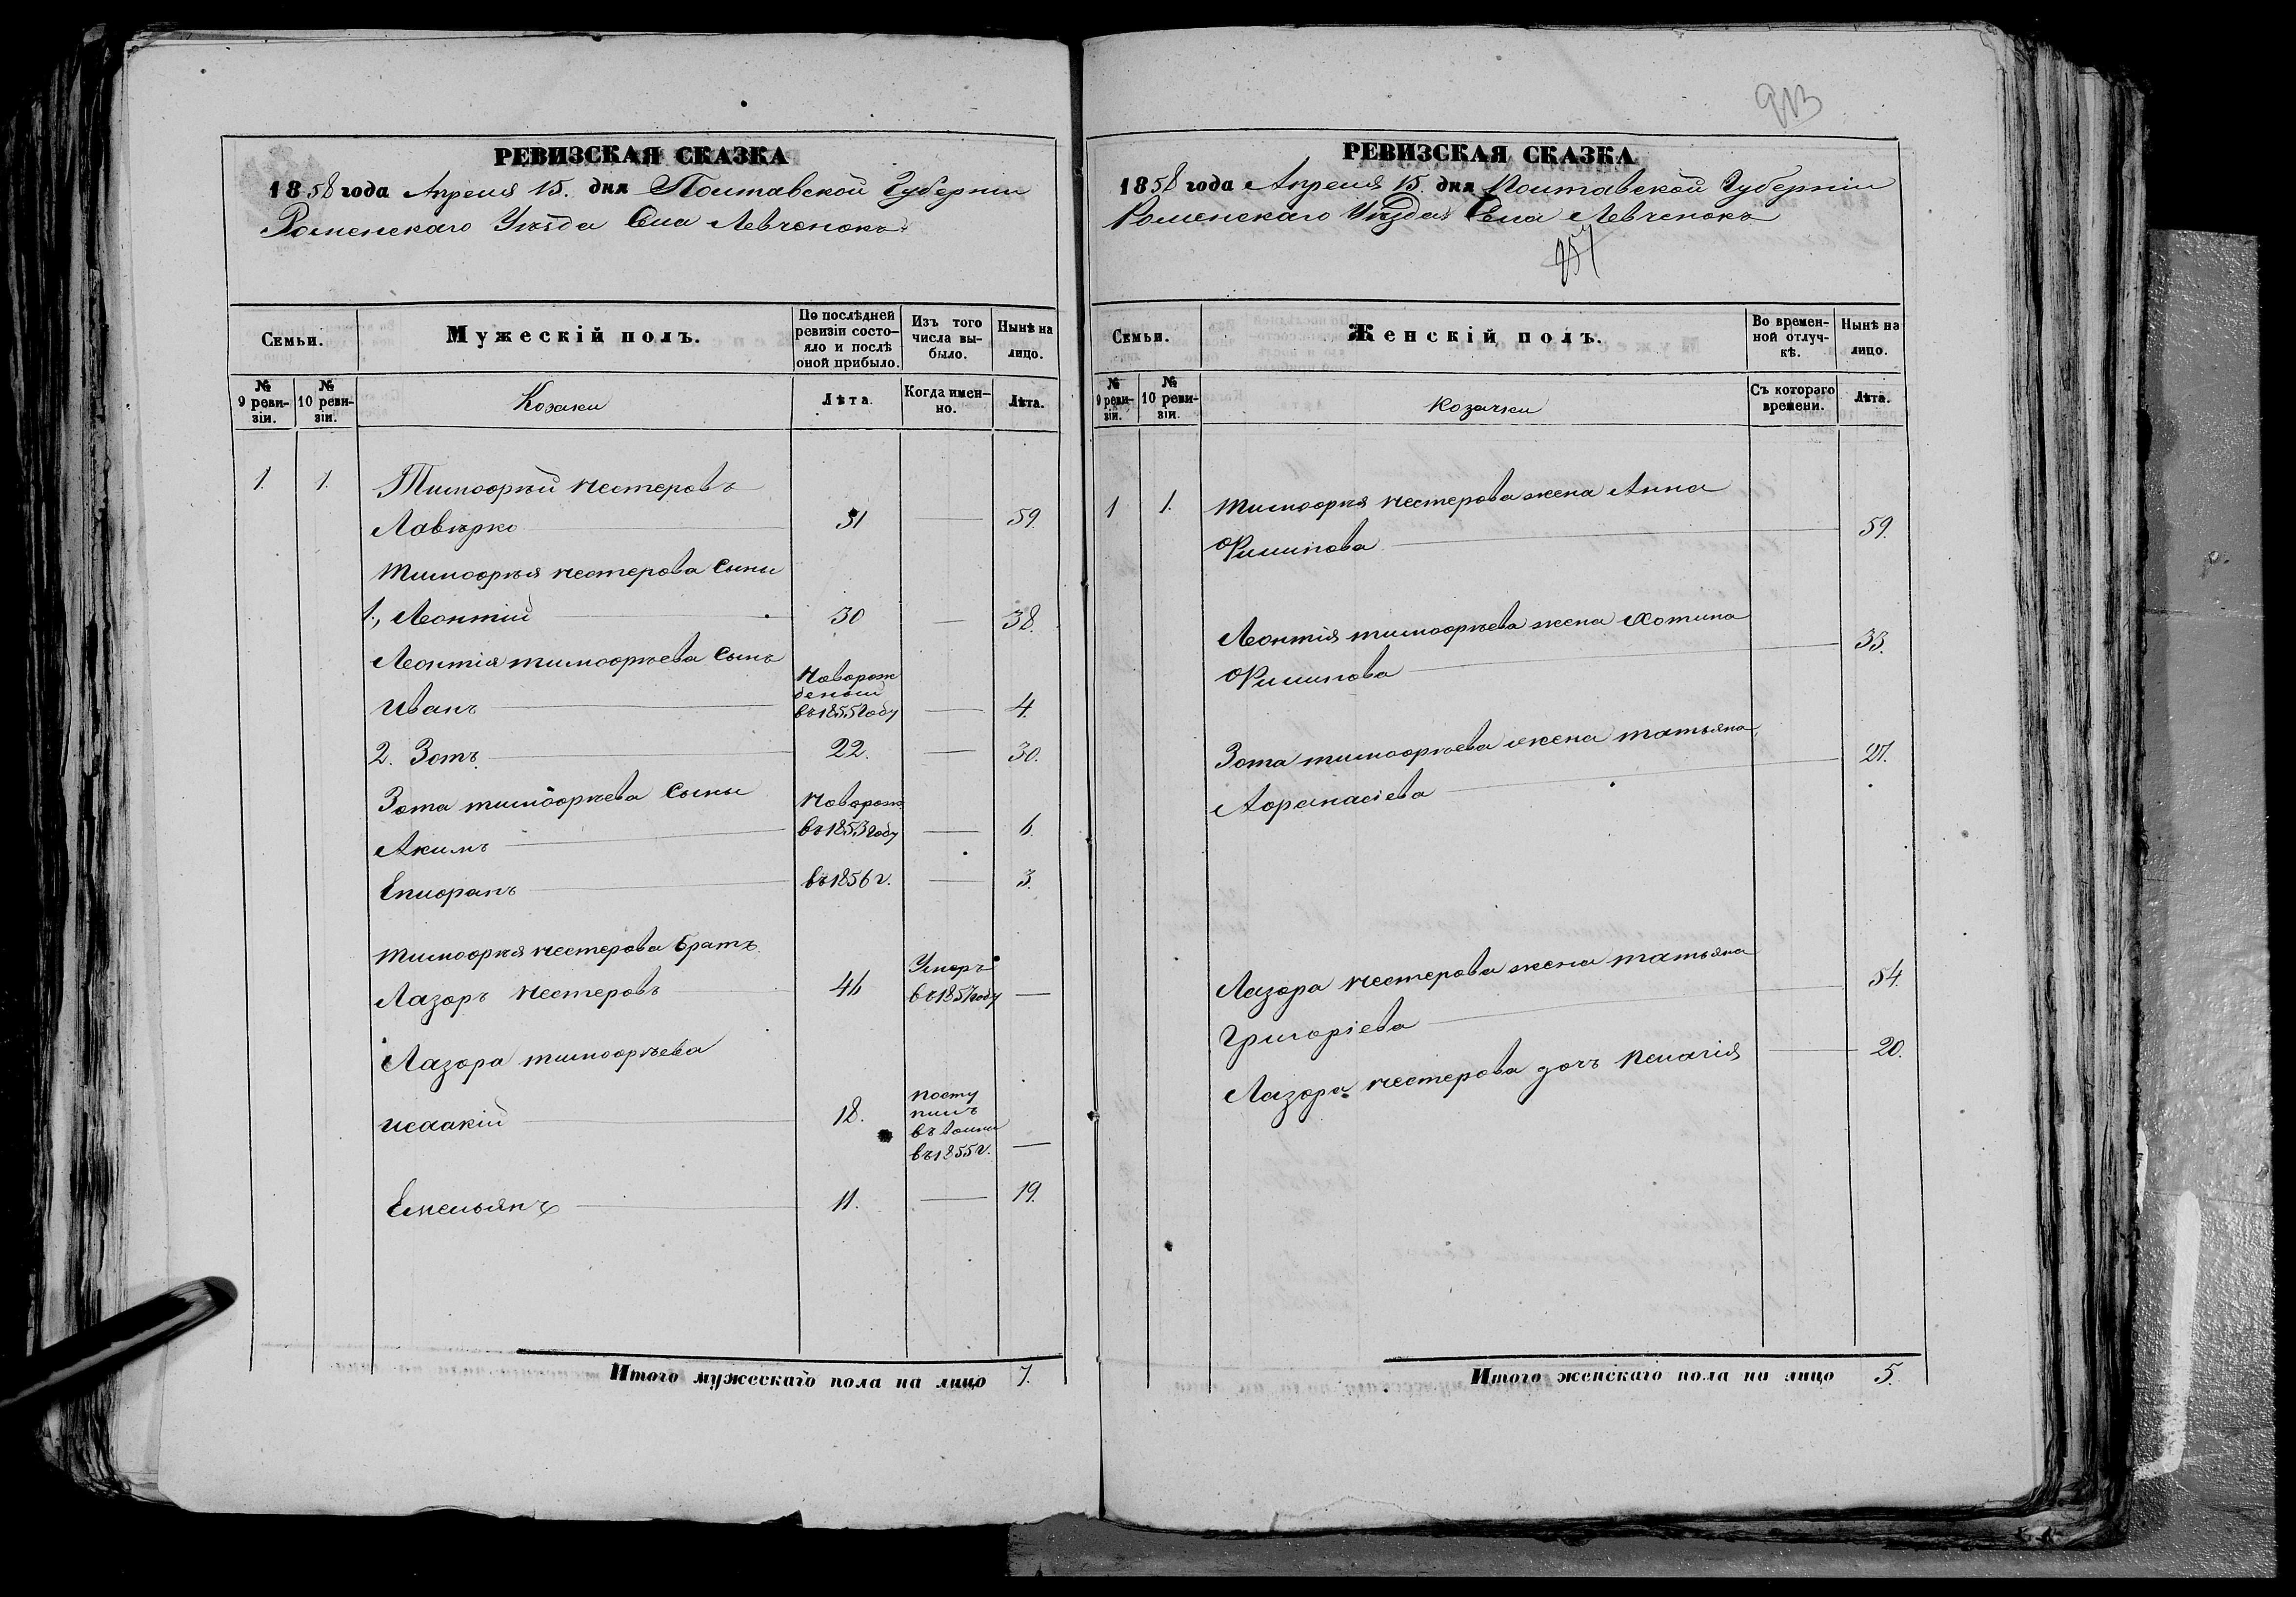 РЕВИЗСКАЯ СКАЗКА
1858 года Апреля 15. дня Полтавской Губерніи
Роменскаго Уѣзда Села Левченокъ
Семьи.
Мужескій полъ.
По послѣдней ревизіи состояло и послѣ оной прибыло.
Изъ того числа выбыло.
Нынѣ на лицо.
№ 9 ревизіи.
№ 10 ревизіи.
Козаки
Лѣта.
Когда именно.
Лѣта.
1. 1. Тимофѣй Нестеровъ
Лавѣрко 51 — 59.
Тимофѣя Нестерова Сыны
1., Леонтій 30 — 38.
Леонтія Тимофѣева Сынъ
Новорож
деный
Иванъ въ 1855 Году — 4.
2. Зотъ 22. — 30.
Зота Тимофѣева Сыны
Новорож
Акимъ въ 1853 Году — 6.
Епифанъ въ 1856 г. — 3.
Тимофѣя Нестерова братъ
Умеръ
Лазоръ Нестеровъ 46 въ 1857 году —
Лазора Тимофѣева
Исаакій 18.
посту
пилъ
въ воины
въ 1855 г. —
Емельянъ 11. — 19.
Итого мужескаго пола на лицо 7.
РЕВИЗСКАЯ СКАЗКА
1858 года Апреля 15. дня Полтавской Губерніи
Роменскаго Уѣзда Села Левченокъ
257
Семьи.
Женскій полъ.
Во временной отлучкѣ.
Нынѣ на лицо.
№ 9 ревизіи.
№ 10 ревизіи.
Козачки
Съ котораго времени.
Лѣта.
1 1. Тимофѣя Нестерова жена Анна
Филипова 59.
Леонтія Тимофѣева жена Хотина
Филипова 33.
Зота Тимофѣева жена Татьяна
Афанасіева 27.
Лазора Нестерова жена Татьяна
Григоріева 54.
Лазора Нестерова дочъ Пелагія 20.
Итого женскаго пола на лицо 5.